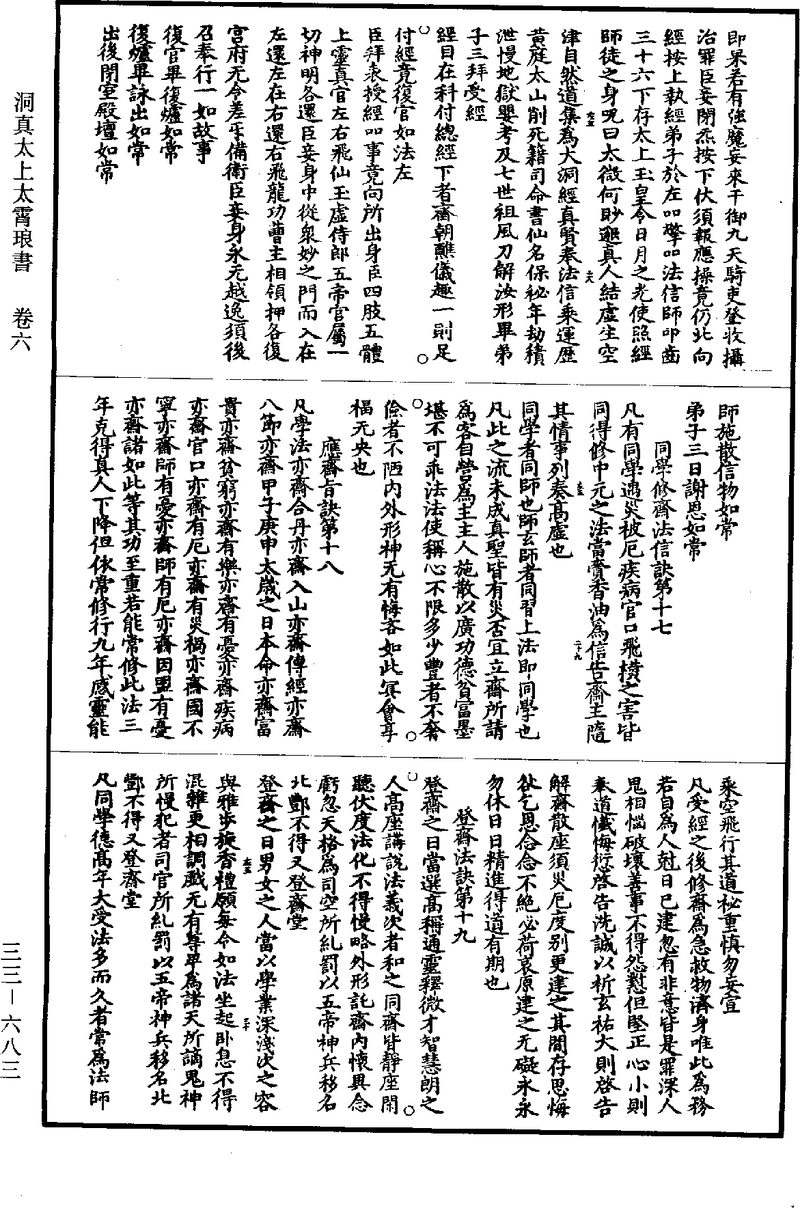 洞真太上太霄琅書　卷六
三三—六八三
即杲若有強魔妄來干御九天騎吏登收攝
治罪臣妾閉炁按下伏須報應操竟仍北向
經按上執經弟子於左叩擎叩法信師叩齒
三十六下存太上玉皇令日月之光使照經
師徒之身呪曰太微何眇邈真人結虛生空
津自然道集為大洞經真賢奉法信乘運歷
黃庭太山削死籍司命書仙名保秘年劫積
泄慢地獄嬰考及七世祖風刀解汝形畢弟
子三拜受經
經目在科付總經下者齋朝醮儀趣一則足
付經竟復官如法左
臣拜表授經品事竟向所出身臣四肢五體
上靈真官左右飛仙玉虛侍郎五帝官屬一
切神明各還臣妾身中從眾妙之門而入在
左還左在右還右飛龍功曹主相領押各復
宮府无令差牙備衛臣妾身永无越逸須後
召奉行一如故事
復官畢復爐如常
復爐畢詠出如常
出後閉室殿壇如常
師施散信物如常
弟子三日謝恩如常
同學修齋法信訣第十七
凡有同學遇災被厄疾病官口飛橫之害皆
同得修中元之法當賷香油為信告齋主隨
其情事列奏高虛也
同學者同師也師玄師者同習上法即同學也
凡此之流未成真聖皆有災否宜立齋所請
為客自營為主主人施散以廣功德貧富墨
堪不可乖法法使稱心不限多少豐者不奢
儉者不陋內外形神无有悔吝如此冥會享
福无央也
應齋旨訣第十八
凡學法亦齋合丹亦齋入山亦齋傳經亦齋
八節亦齋甲子庚申太歲之日本命亦齋富
貴亦齋貧窮亦齋有樂亦齋有憂亦齋疾病
亦齋官口亦齋有厄亦齋有災禍亦齋國不
寧亦齋師有憂亦齋師有厄亦齋因盟有憂
亦齋諸如此等其功至重若能常修此法三
年克得真人下降但依常修行九年感靈能
乘空飛行其道秘重慎勿妄宣
凡受經之後修齋為急救物濟身唯此為務
若自為人剋日已建忽有非意皆是罪深人
鬼相惱破壞善事不得怨懟但堅正心小則
奉道懺悔愆啓告洗誠以祈玄祐大則啓告
解齋散座須災厄度別更建之其間存思悔
欲乞恩念念不絕必荷哀原建之无礙永永
勿休日日精進得道有期也
登齋法訣第十九
登齋之日當選高稱通靈釋微才智慧朗之
人高座講說法義次者和之同齋皆靜座閑
聽伏度法化不得慢略外形託齋內懷異念
虧忽天格為司空所糺罰以五帝神兵移名
北酆不得又登齋堂
登齋之日男女之人當以學業深淺次之容
與雅步旋香禮願每令如法坐起卧息不得
混雜更相調戲无有尊卑為諸天所謫鬼神
所慢犯者司官所糺罰以五帝神兵移名北
酆不得又登齋堂
凡同學德高年大受法多而久者常為法師